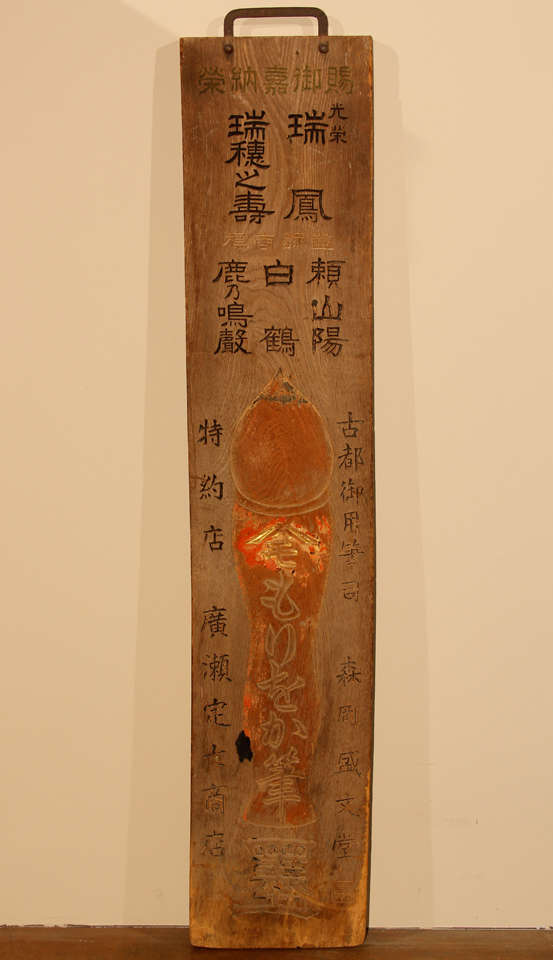 賜御嘉納榮
光榮
瑞鳳
瑞穗之壽
頼山陽
白鶴
鹿乃鳴聲
古都御用筆司 森岡盛文堂
もりをか筆
特約店 廣瀬定 商店